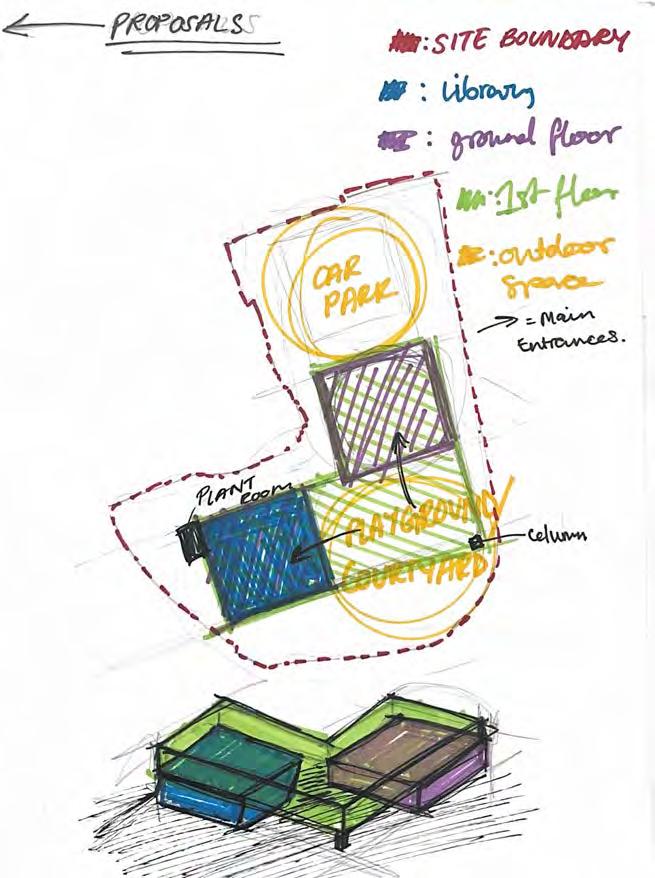 PROPOSALS
: SITE BOUNDARY
: library
: ground floor
: 1st floor
: outdoor
space
= Main
Entrances.
CAR
PARK
PLANT
ROOM
PLAYGROUND/
COURTYARD
Column